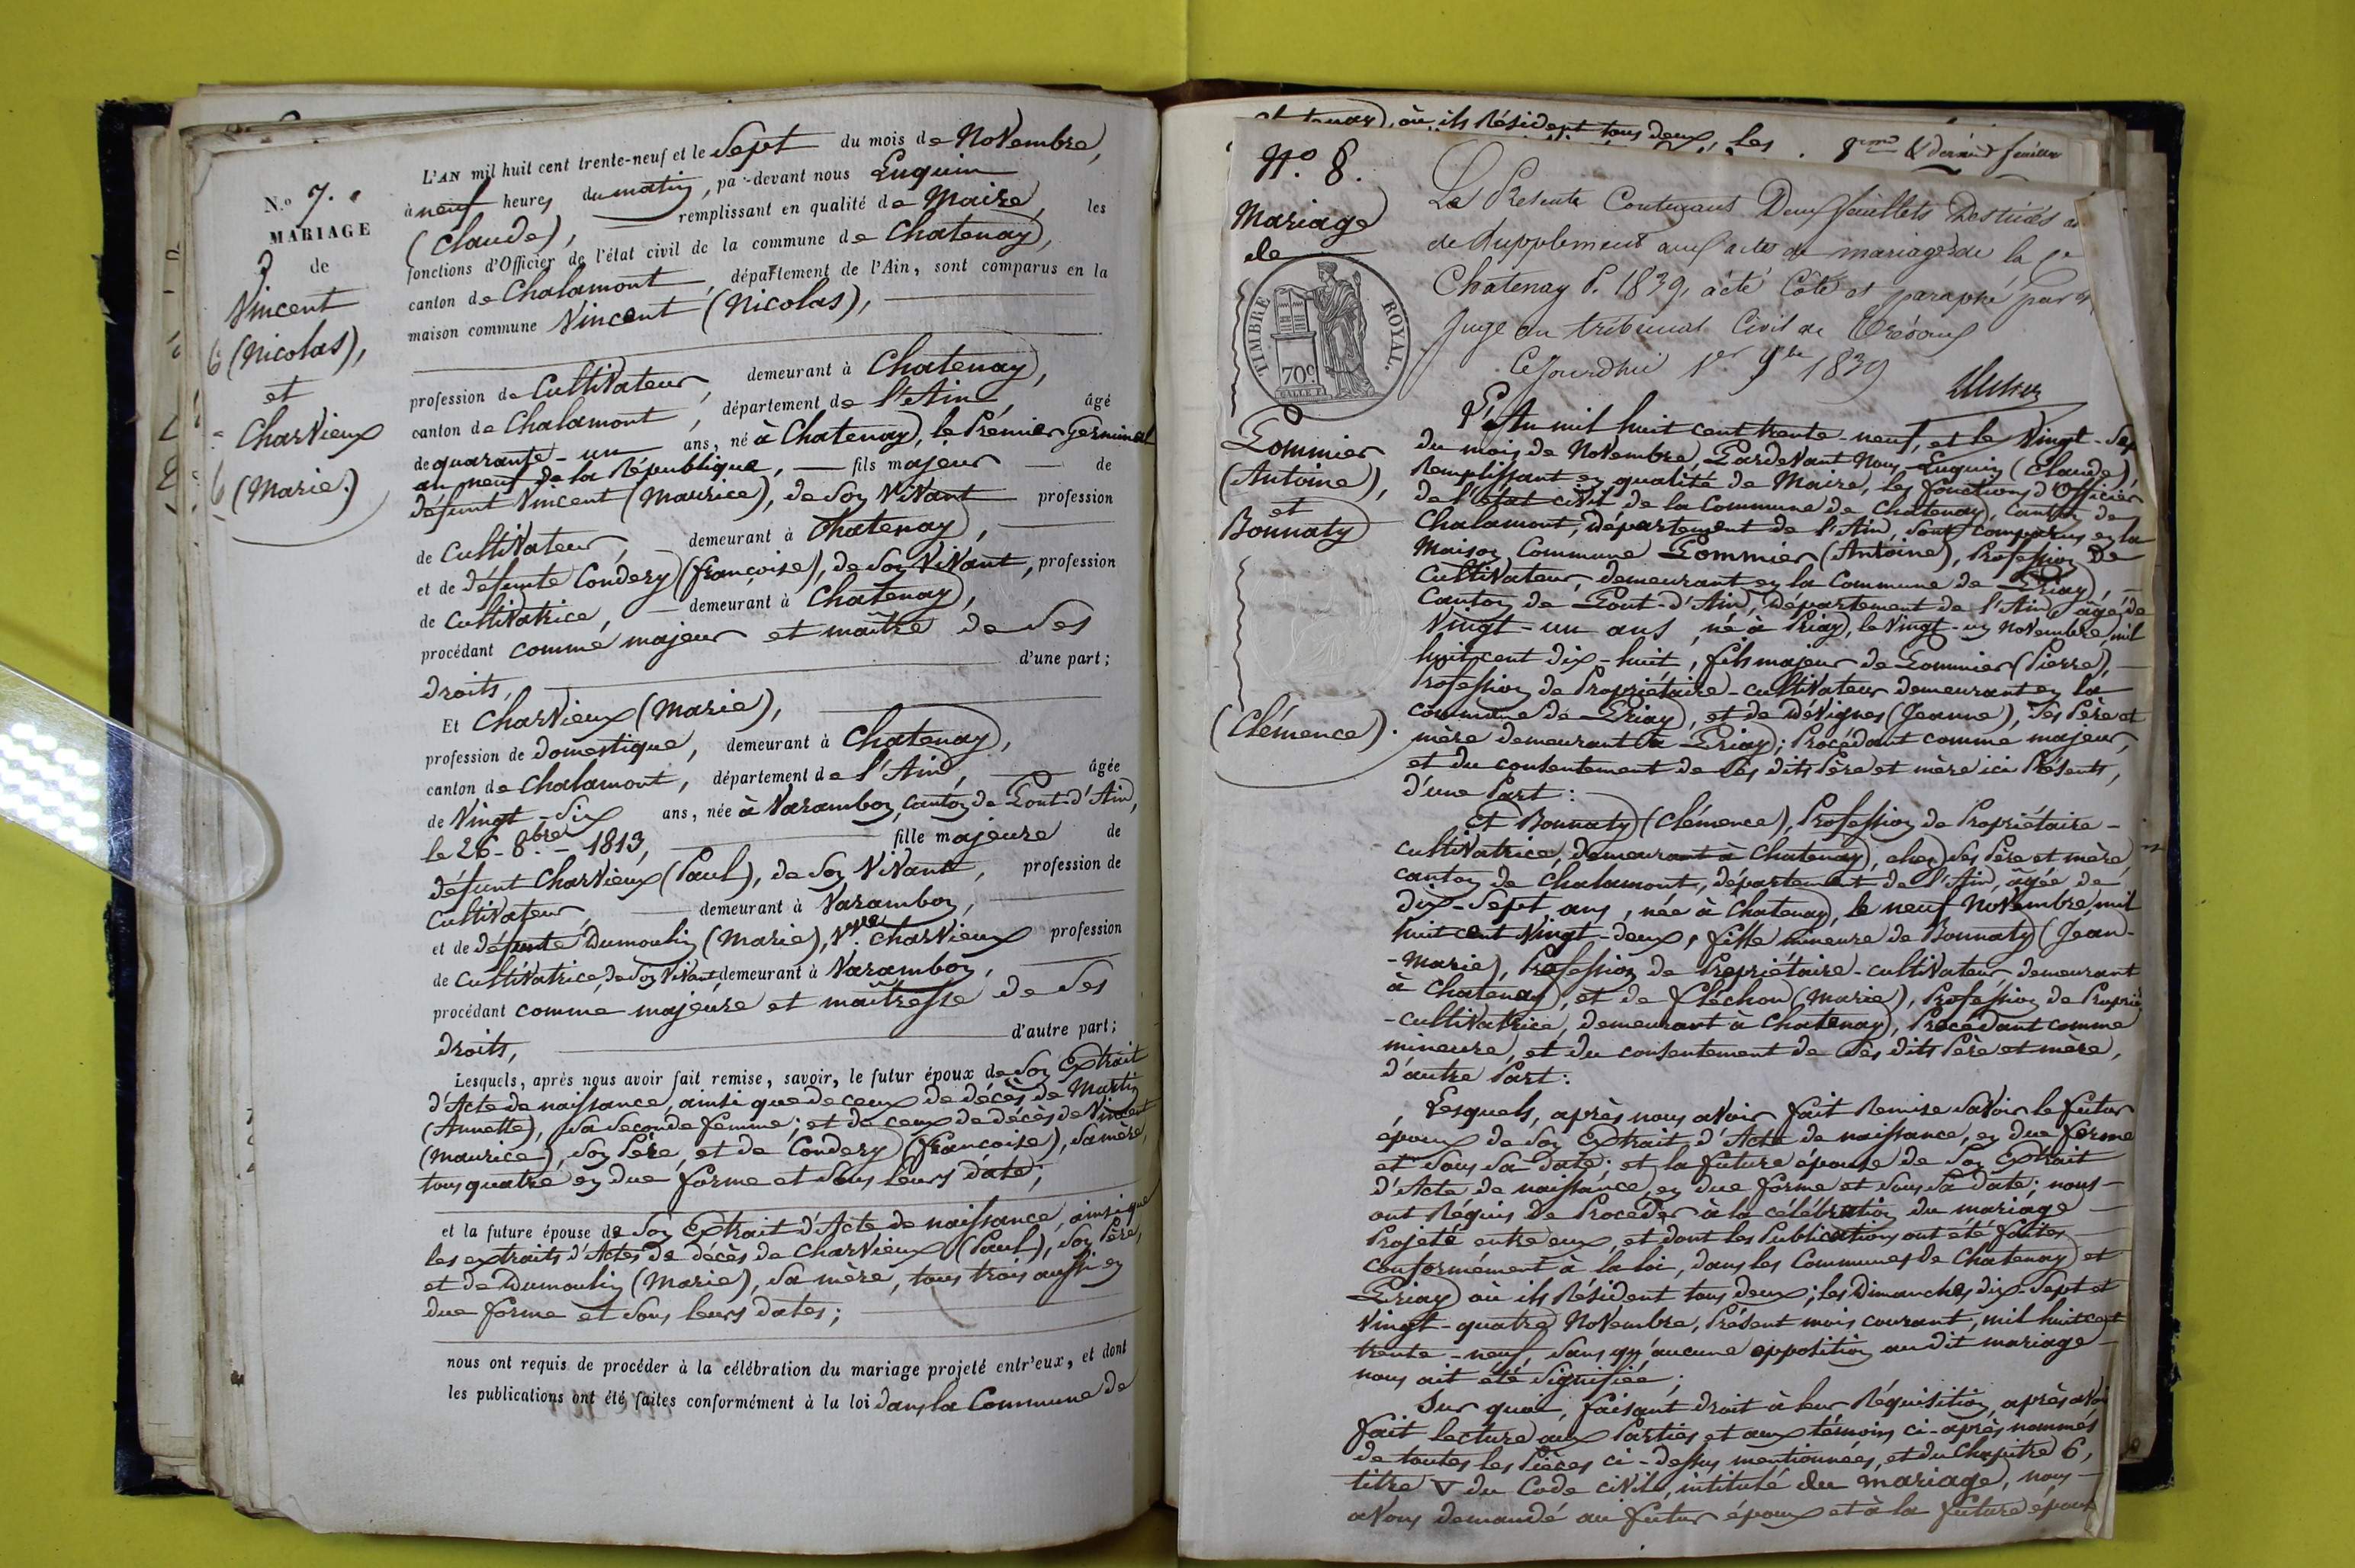 N.º 7.
MARIAGE
de
Vincent
(Nicolas),
et
Charvieux
(Marie.)
L'AN mil huit cent trente-neuf et le Sept du mois de Novembre,
à neuf heures du matin, par-devant nous Enquin
(Claude), remplissant en qualité de Maire, les
fonctions d'Officier de l'état civil de la commune de Chatenay,
canton de Chalamont, département de l'Ain, sont comparus en la
maison commune Vincent (Nicolas),
profession de Cultivateur, demeurant à Chatenay,
canton de Chalamont, département de l'Ain, âgé
de quarante-un ans, né à Chatenay, le Prémier Germinal
an neuf de la République, fils majeur de
défunt Vincent (Maurice), de Son Vivant profession
de Cultivateur, demeurant à Chatenay,
et de défunte Condery (françoise), de Son Vivant, profession
de Cultivatrice, demeurant à Chatenay,
procédant comme majeur et maître de Ses
d'une part;
droits,
Et Charvieux (Marie),
profession de domestique, demeurant à Chatenay,
canton de Chalamont, département de l'Ain, âgée
de Vingt-Six ans, née à Varambon, canton de Pont-d'Ain,
le 26 8bre 1813, fille majeure de
défunt Charvieux (Paul), de Son Vivant, profession de
Cultivateur, demeurant à Varambon,
et de défunte Dumoulin (Marie), Vve Charvieux profession
de Cultivatrice, de Son Vivant demeurant à Varambon,
procédant comme majeure et maîtresse de Ses
droits, d'autre part;
Lesquels, après nous avoir fait remise, savoir, le futur époux de Son Extrait
d'Acte de naissance, ainsi que de ceux de décès de Martin
(Annette), Sa Seconde femme; et de ceux de décès de Vincent
(Maurice), Son Père, et de Condery (françoise), Sa mère,
tous quatre en due forme et Sous leurs date;
et la future épouse de Son Extrait d'Acte de naissance, ainsi que
les extraits d'Actes de décès de Charvieux (Paul), Son Père,
et de Dumoulin (Marie), Sa mère, tous trois aussi en
due forme et Sous leurs dates;
nous ont requis de procéder à la célébration du mariage projeté entr'eux, et dont
les publications ont été faites conformément à la loi dans la Commune de
où ils Résident tous deux, les
N.º 8.
Mariage
de
TIMBRE ROYAL
70c.
Pommier
(Antoine),
et
Bonnaty
(Clémence).
La Présente Contenant Deux feuillets Destinés
de Supplément aux actes de mariages de la
Chatenay P. 1839, a été Coté et paraphé par
Juge au tribunal Civil de Trévoux
Cejourdhui 1er 9bre 1839
L'An mil huit cent trente-neuf, et le Vingt-Sep
du mois de Novembre, Pardevant Nous, Enquin (Claude),
Remplissant en qualité de Maire, les fonctions d'Officier
de l'état civil de la Commune de Chatenay, Canton de
Chalamont, département de l'Ain, Sont comparus en la
Maison Commune Pommier (Antoine), Profession De
Cultivateur, demeurant en la Commune de Priay,
Canton de Pont-d'Ain, département de l'Ain, âgé de
Vingt-un ans, né à Priay, le Vingt-un Novembre, mil
huit cent dix-huit, fils majeur de Pommier (Pierre),
Profession de Propriétaire-cultivateur demeurant en la
commune de Priay, et de Dévignes (Jeanne), Ses Père et
mère demeurant à Priay; Procédant comme majeur,
et du consentement de Ses dits Père et mère ici Présents,
d'une Part:
Et Bonnaty (Clémence), Profession de Propriétaire-
cultivatrice, demeurant à Chatenay, chez Ses Père et mère,
canton de Chalamont, département de l'Ain, âgée de
Dix-Sept ans, née à Chatenay, le neuf Novembre, mil
huit cent Vingt-deux, fille mineure de Bonnaty (Jean-
-Marie), Profession de Propriétaire-cultivateur, demeurant
à Chatenay, et de fléchon (Marie), Profession de Proprié
-cultivatrice, demeurant à Chatenay, Procédant comme
mineure, et du consentement de Ses dits Père et mère,
d'autre Part:
Lesquels, après nous avoir fait Remise Savoir le futur
époux de Son Extrait d'Acte de naissance, en due forme
et Sous Sa date; et la future épouse de Son Extrait
d'Acte de naissance, en due forme et Sous Sa date; nous
ont Réquis de Procéder à la célébration du mariage
Projeté entre eux, et dont les Publications ont été faites
conformément à la loi, dans les Communes de Chatenay et
Priay où ils Résident tous deux; les Dimanches dix-Sept et
Vingt-quatre Novembre, Présent mois courant, mil huit cent
trente-neuf, Sans qu'aucune opposition au dit mariage
nous ait été Signifiée;
Sur quoi, faisant droit à leur Réquisition, après avoir
fait lecture aux Parties et aux témoins ci-après nommés
de toutes les Pièces ci-dessus mentionnées, et du Chapitre 6,
titre V du Code civil, intitulé du mariage, nous
avons demandé au futur époux et à la future épouse